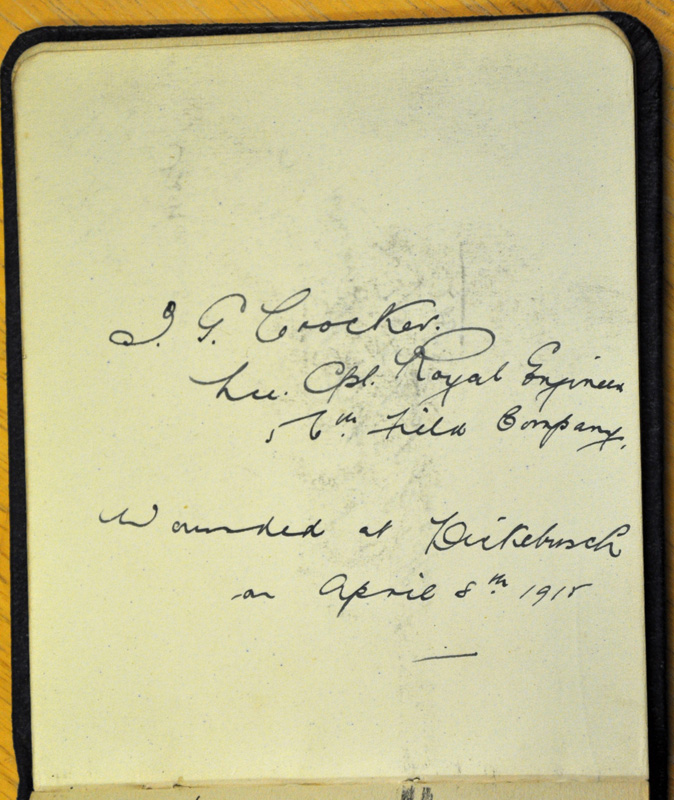 J. G. Crocker.
Lce. Cpl. Royal Engineers
56th Field Company.
Wounded at Dickebusch
on April 8th 1915